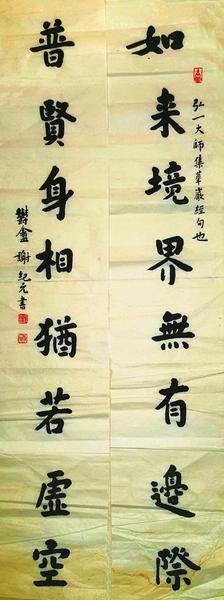 如来境界無有邊際
弘一大師集華嚴經句也
普賢身相猶若虛空
謝紀元書